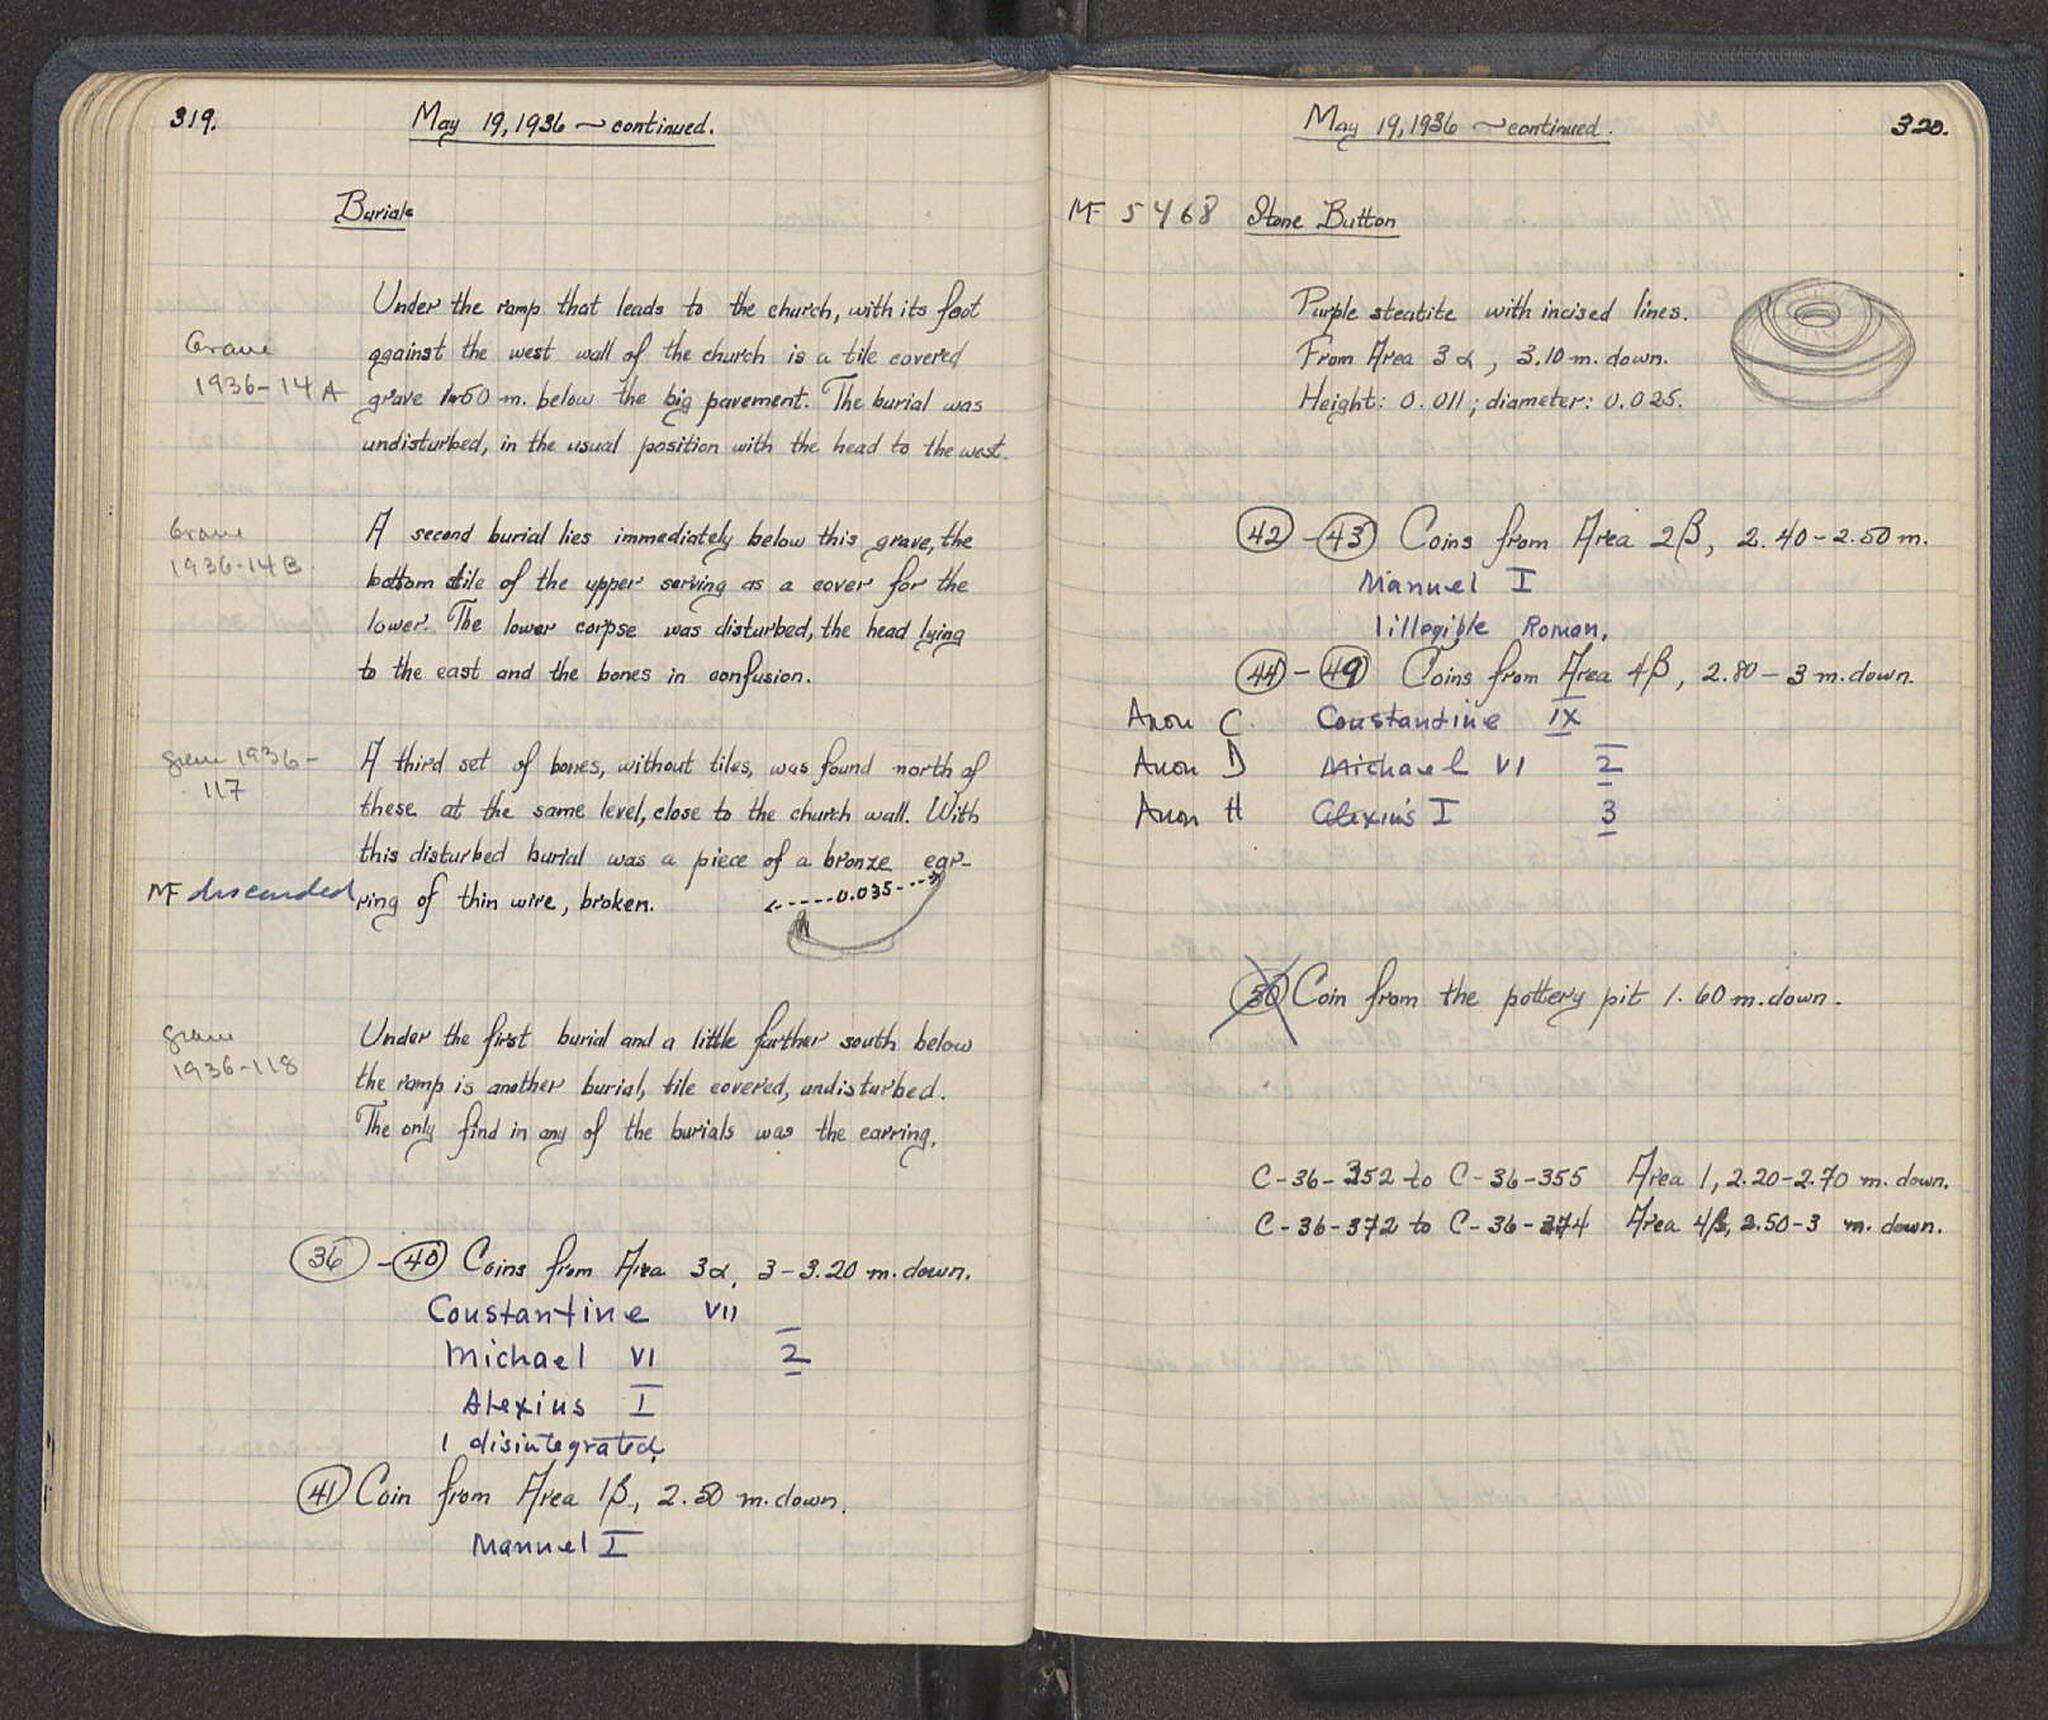 319.
May 19, 1936 ~ continued.
Burials
Under the ramp that leads to the church, with its foot
Grave
against the west wall of the church is a tile covered
1936-14A
grave 1.50 m. below the big pavement. The burial was
undisturbed, in the usual position with the head to the west.
Grave
A second burial lies immediately below this grave, the
1936-14B.
bottom tile of the upper serving as a cover for the
lower. The lower corpse was disturbed, the head lying
to the east and the bones in confusion.
grave 1936-
117
A third set of bones, without tiles, was found north of
these at the same level, close to the church wall. With
this disturbed burial was a piece of a bronze ear-
MF discarded
ring of thin wire, broken.
0.035
grave
1936-118
Under the first burial and a little farther south below
the ramp is another burial, tile covered, undisturbed.
The only find in any of the burials was the earring.
36 - 40 Coins from Area 3α, 3-3.20 m. down.
Constantine VII
Michael VI 2
Alexius I
1 disintegrated.
41 Coin from Area 1β, 2.50 m. down.
Manuel I
May 19, 1936 ~ continued.
320.
MF 5468 Stone Button
Purple steatite with incised lines.
From Area 3α, 3.10 m. down.
Height: 0.011; diameter: 0.025.
42 - 43 Coins from Area 2β, 2.40-2.50 m.
Manuel I
1 illegible Roman.
44 - 49 Coins from Area 4β, 2.80-3 m. down.
Anon C. Constantine IX
Anon D Michael VI 2
Anon H Alexius I 3
50 Coin from the pottery pit 1.60 m. down.
C-36-352 to C-36-355 Area 1, 2.20-2.70 m. down.
C-36-372 to C-36-374 Area 4β, 2.50-3 m. down.